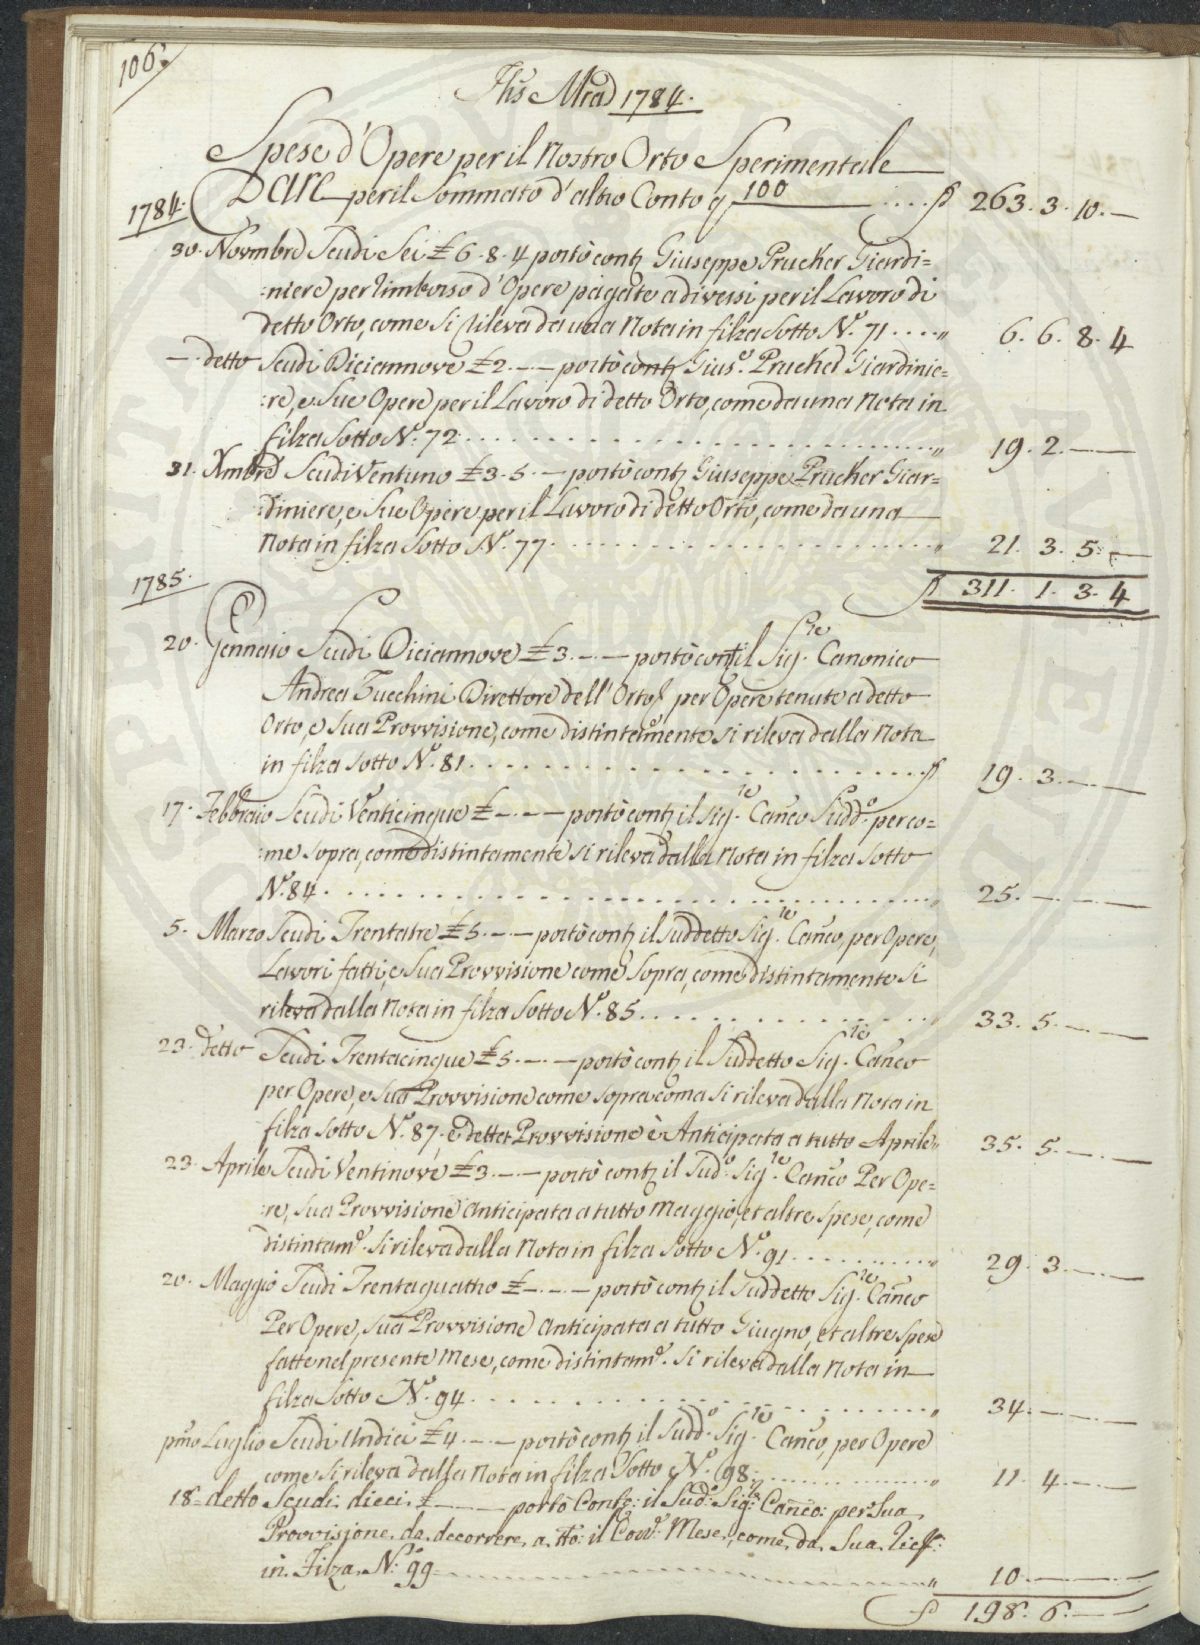 106.
Jhs Mrad 1784.
Spese d'Opere per il Nostro Orto Sperimentale
1784. Dare per il Sommato d'altro Conto 100 .... 263. 3. 10. —
30. Novmbre Scudi Sei £ 6. 8. 4 portò cont Giuseppe Prucher Giardi=
:niere per rimborso d'Opere pagate a diversi per il Lavoro di
detto Orto, come si rileva da una Nota in filza Sotto No. 71 .... " 6. 6. 8. 4
— detto Scudi Diciannove £ 2. — — portò cont Giuso. Prucher Giardinie=
:re, e Sue Opere per il Lavoro di detto Orto, come da una Nota in
filza Sotto No. 72 .... " 19. 2. — —
31. Xmbre Scudi Ventuno £ 3. 5. — portò cont Giuseppe Prucher Giar=
:diniere, e Sue Opere per il Lavoro di detto Orto, come da una
Nota in filza Sotto No. 77 .... " 21. 3. 5. —
311. 1. 3. 4
1785.
20. Gennaio Scudi Diciannove £ 3. — — portò cont il Sigre. Canonico
Andrea Zucchini Direttore dell'Orto per Opere tenute a detto
Orto, e Sua Provvisione, come distintamente si rileva dalla Nota
in filza Sotto No. 81 .... 19. 3. — —
17. Febbraio Scudi Venticinque £ —. — — portò cont il Sigre. Canco Suddo. per co=
:me sopra, come distintamente si rileva dalla Nota in filza Sotto
No. 84 .... " 25. — — —
5. Marzo Scudi Trentatre £ 5. — — portò cont il Suddetto Sigre. Canco, per Opere,
Lavori fatti, e Sua Provvisione come sopra, come distintamente si
rileva dalla Nota in filza Sotto No. 85 .... " 33. 5. — —
23. detto Scudi Trentacinque £ 5. — — portò cont il Suddetto Sigre. Canco
per Opere, e Sua Provvisione come sopra coma si rileva dalla Nota in
filza Sotto No. 87. e detta Provvisione è Anticipata a tutto Aprile " 35. 5. — —
23. Aprile Scudi Ventinove £ 3. — — portò cont il Sudo. Sigre. Canco Per Ope=
:re, Sua Provvisione anticipata a tutto Maggio, et altre Spese, come
distintame. si rileva dalla Nota in filza Sotto No. 91 .... " 29. 3. — —
20. Maggio Scudi Trentaquattro £ —. — — portò cont il Suddetto Sigre. Canco
Per Opere, Sua Provvisione anticipata a tutto Giugno, et altre Spese
fatte nel presente Mese, come distintame. si rileva dalla Nota in
filza Sotto No. 94 .... " 34. — — —
pmo Luglio Scudi Undici £ 4. — — portò cont il Suddo. Sigre. Canco, per Opere
come si rileva dalla Nota in filza Sotto No. 98. .... " 11. 4. — —
18= detto Scudi: dieci. £ — — — portò Conto: il Sudo: Sigre: Canco: per Sua
Provvisione. da. decorrere, a. tto: il Mese, come. da. Sua.
in. Filza. No: 99 .... " 10. — — —
198. 6. — —